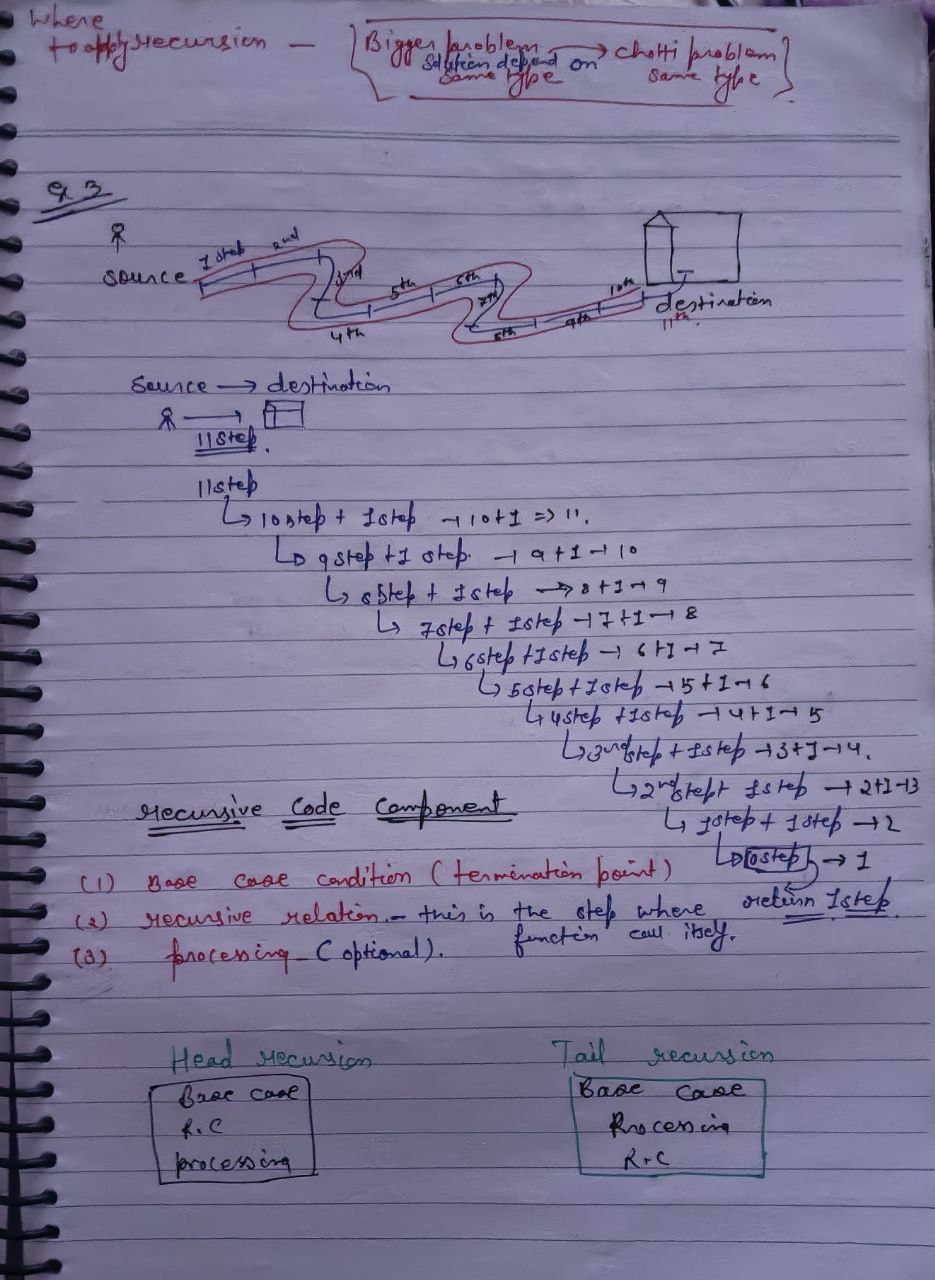 where
to apply recursion — Bigger problem → chotti problem
solution depend on
same type same type
Ex 3
1 step 2nd 3rd 4th 5th 6th 7th 8th 9th 10th 11th
source destination
source → destination
11 step.
11 step
↳ 10 step + 1 step → 10+1 => 11.
↳ 9 step + 1 step. → 9+1 → 10
↳ 8 step + 1 step → 8+1 → 9
↳ 7 step + 1 step → 7+1 → 8
↳ 6 step + 1 step → 6+1 → 7
↳ 5 step + 1 step → 5+1 → 6
↳ 4 step + 1 step → 4+1 → 5
↳ 3rd step + 1 step → 3+1 → 4.
↳ 2nd step + 1 step → 2+1 → 3
↳ 1 step + 1 step → 2
↳ 0 step → 1
return 1 step
recursive Code Component
(1) Base case condition (termination point)
(2) recursive relation. – this is the step where
function call itself.
(3) processing (optional).
Head recursion
Base case
R.C
processing
Tail recursion
Base case
Processing
R.C